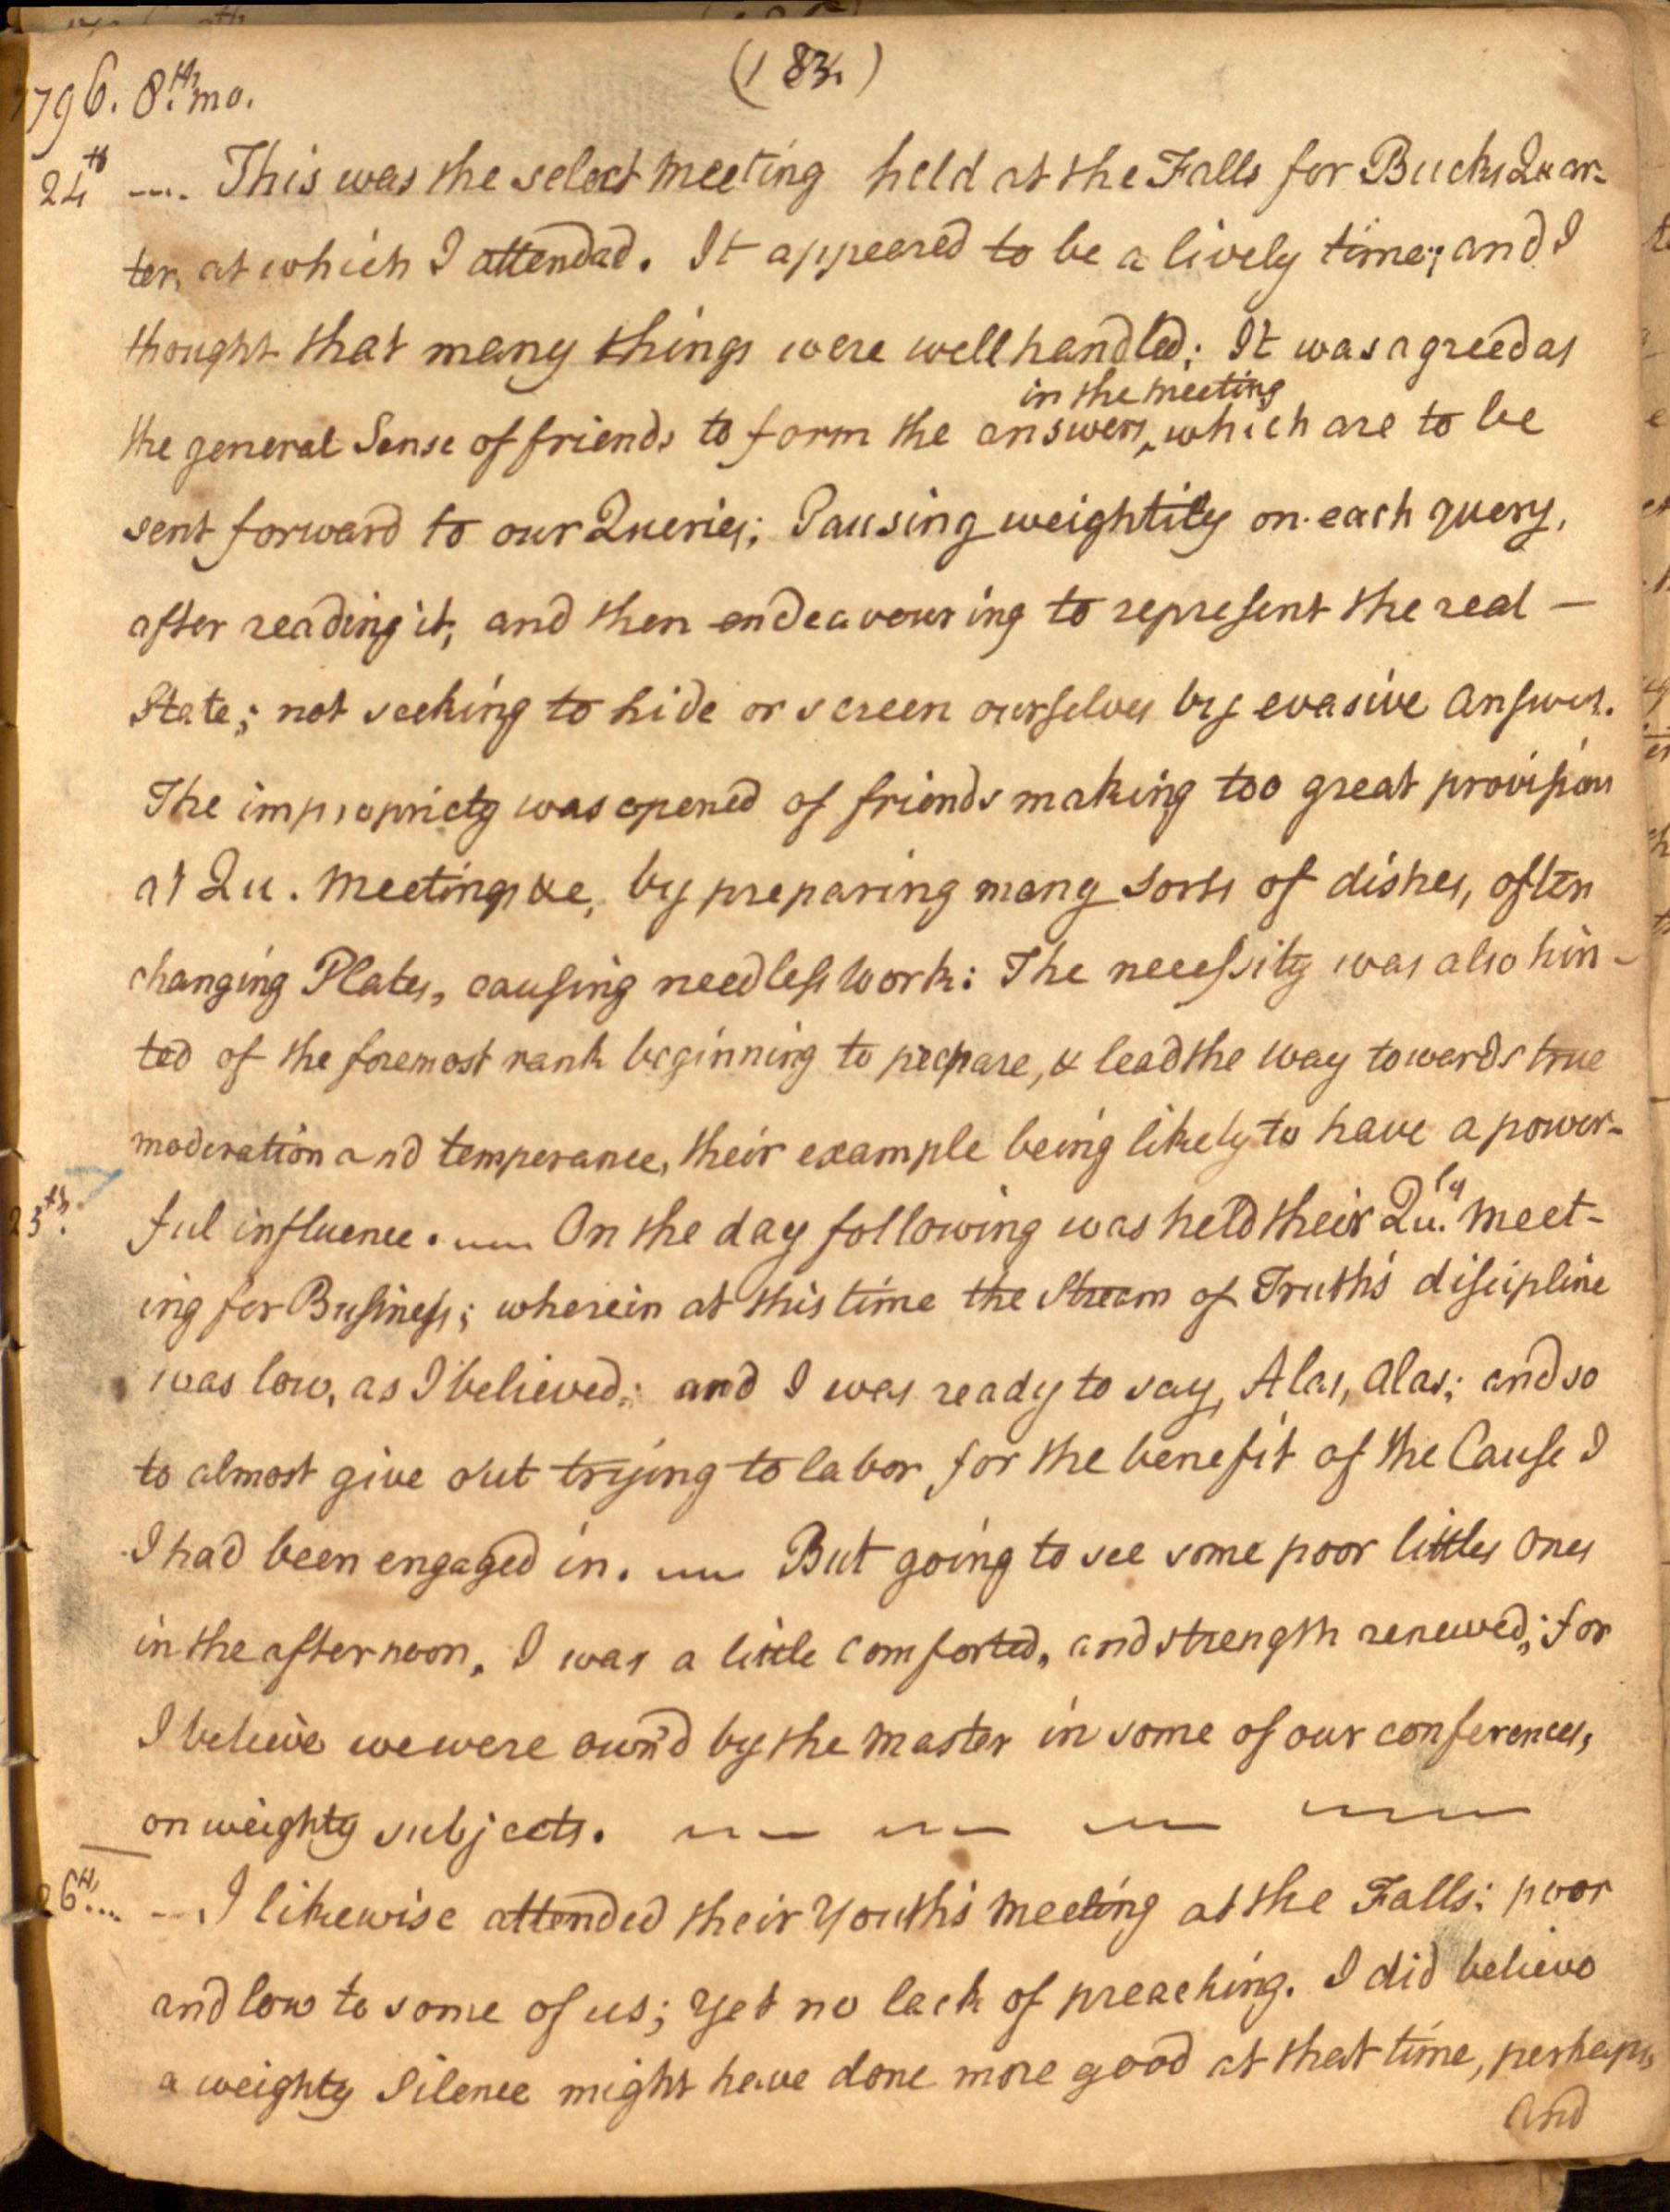 (183.)
1796. 8th mo.
24th .... This was the select meeting held at the Falls for Bucks Quar-
ter, at which I attended. It appeared to be a lively time; and I
thought that many things were well handled; It was agreed as
in the meeting
the general Sense of friends to form the answers, ‸ which are to be
sent forward to our Queries; Pausing weightily on each query,
after reading it, and then endeavouring to represent the real —
State; not seeking to hide or screen ourselves by evasive answers.
The impropriety was opened of friends making too great provision
at Qu. meetings &c, by preparing many sorts of dishes, often
changing Plates, causing needless work: The necessity was also hin-
ted of the foremost rank beginning to prepare, & lead the way towards true
moderation and temperance, their example being likely to have a power-
25th. ful influence. — On the day following was held their Qu.ly meet-
ing for Business; wherein at this time the Stream of Truth's discipline
was low, as I believed; and I was ready to say, Alas, alas; and so
to almost give out trying to labor for the benefit of the Cause I
I had been engaged in. — But going to see some poor littles ones
in the afternoon, I was a little comforted, and strength renewed; for
I believe we were own'd by the master in some of our conferences,
on weighty subjects. — — — —
26th.... — I likewise attended their Youth's meeting at the Falls: poor
and low to some of us; yet no lack of preaching. I did believe
a weighty Silence might have done more good at that time, perhaps,
and